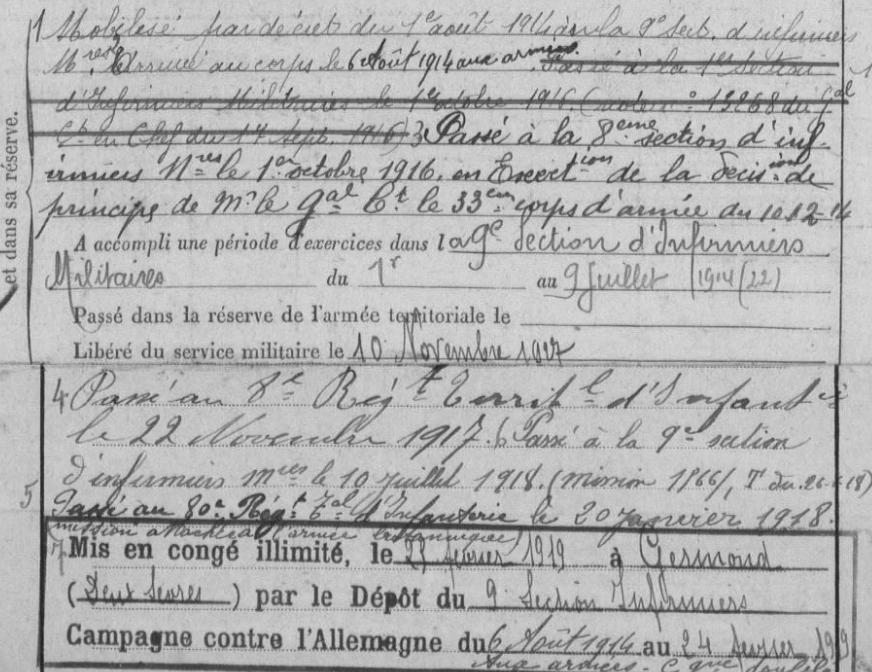 1 Mobilisé par décret du 1er août 1914 à la 9e Sect. d'infirmiers
Mres Arrivé au corps le 6 Août 1914 aux armées. Passé à la 1re Section
d'Infirmiers Militaires le 1er octobre 1916. (note no 13268 du Gal
Ct en Chef du 17 Sept. 1916) 3 Passé à la 8eme section d'inf-
irmiers Mres le 1er octobre 1916. en Exécction de la décision de
principe de Mr le Gal Ct le 33em corps d'armée du 10.12-14
et dans sa réserve.
A accompli une période d'exercices dans la 9e Section d'Infirmiers
Militaires du 1r au 9 Juillet (1914/22)
Passé dans la réserve de l'armée territoriale le
Libéré du service militaire le 10 Novembre 1927
4 Passé au 8e Régt Territl d'Infantie
le 22 Novembre 1917. 6 Passé à la 9e section
d'infirmiers Mres le 10 Juillet 1918. (mission 1866/, T du 26-6-18)
5 Passé au 80e Régt Tal d'Infanterie le 20 janvier 1918.
(mission attachée à l'armée britannique)
7 Mis en congé illimité, le février 1919 à Germond
(Deux Sèvres) par le Dépôt du 9 Section Infirmiers
Campagne contre l'Allemagne du 6 Août 1914 au 24 février 1919
Aux armées